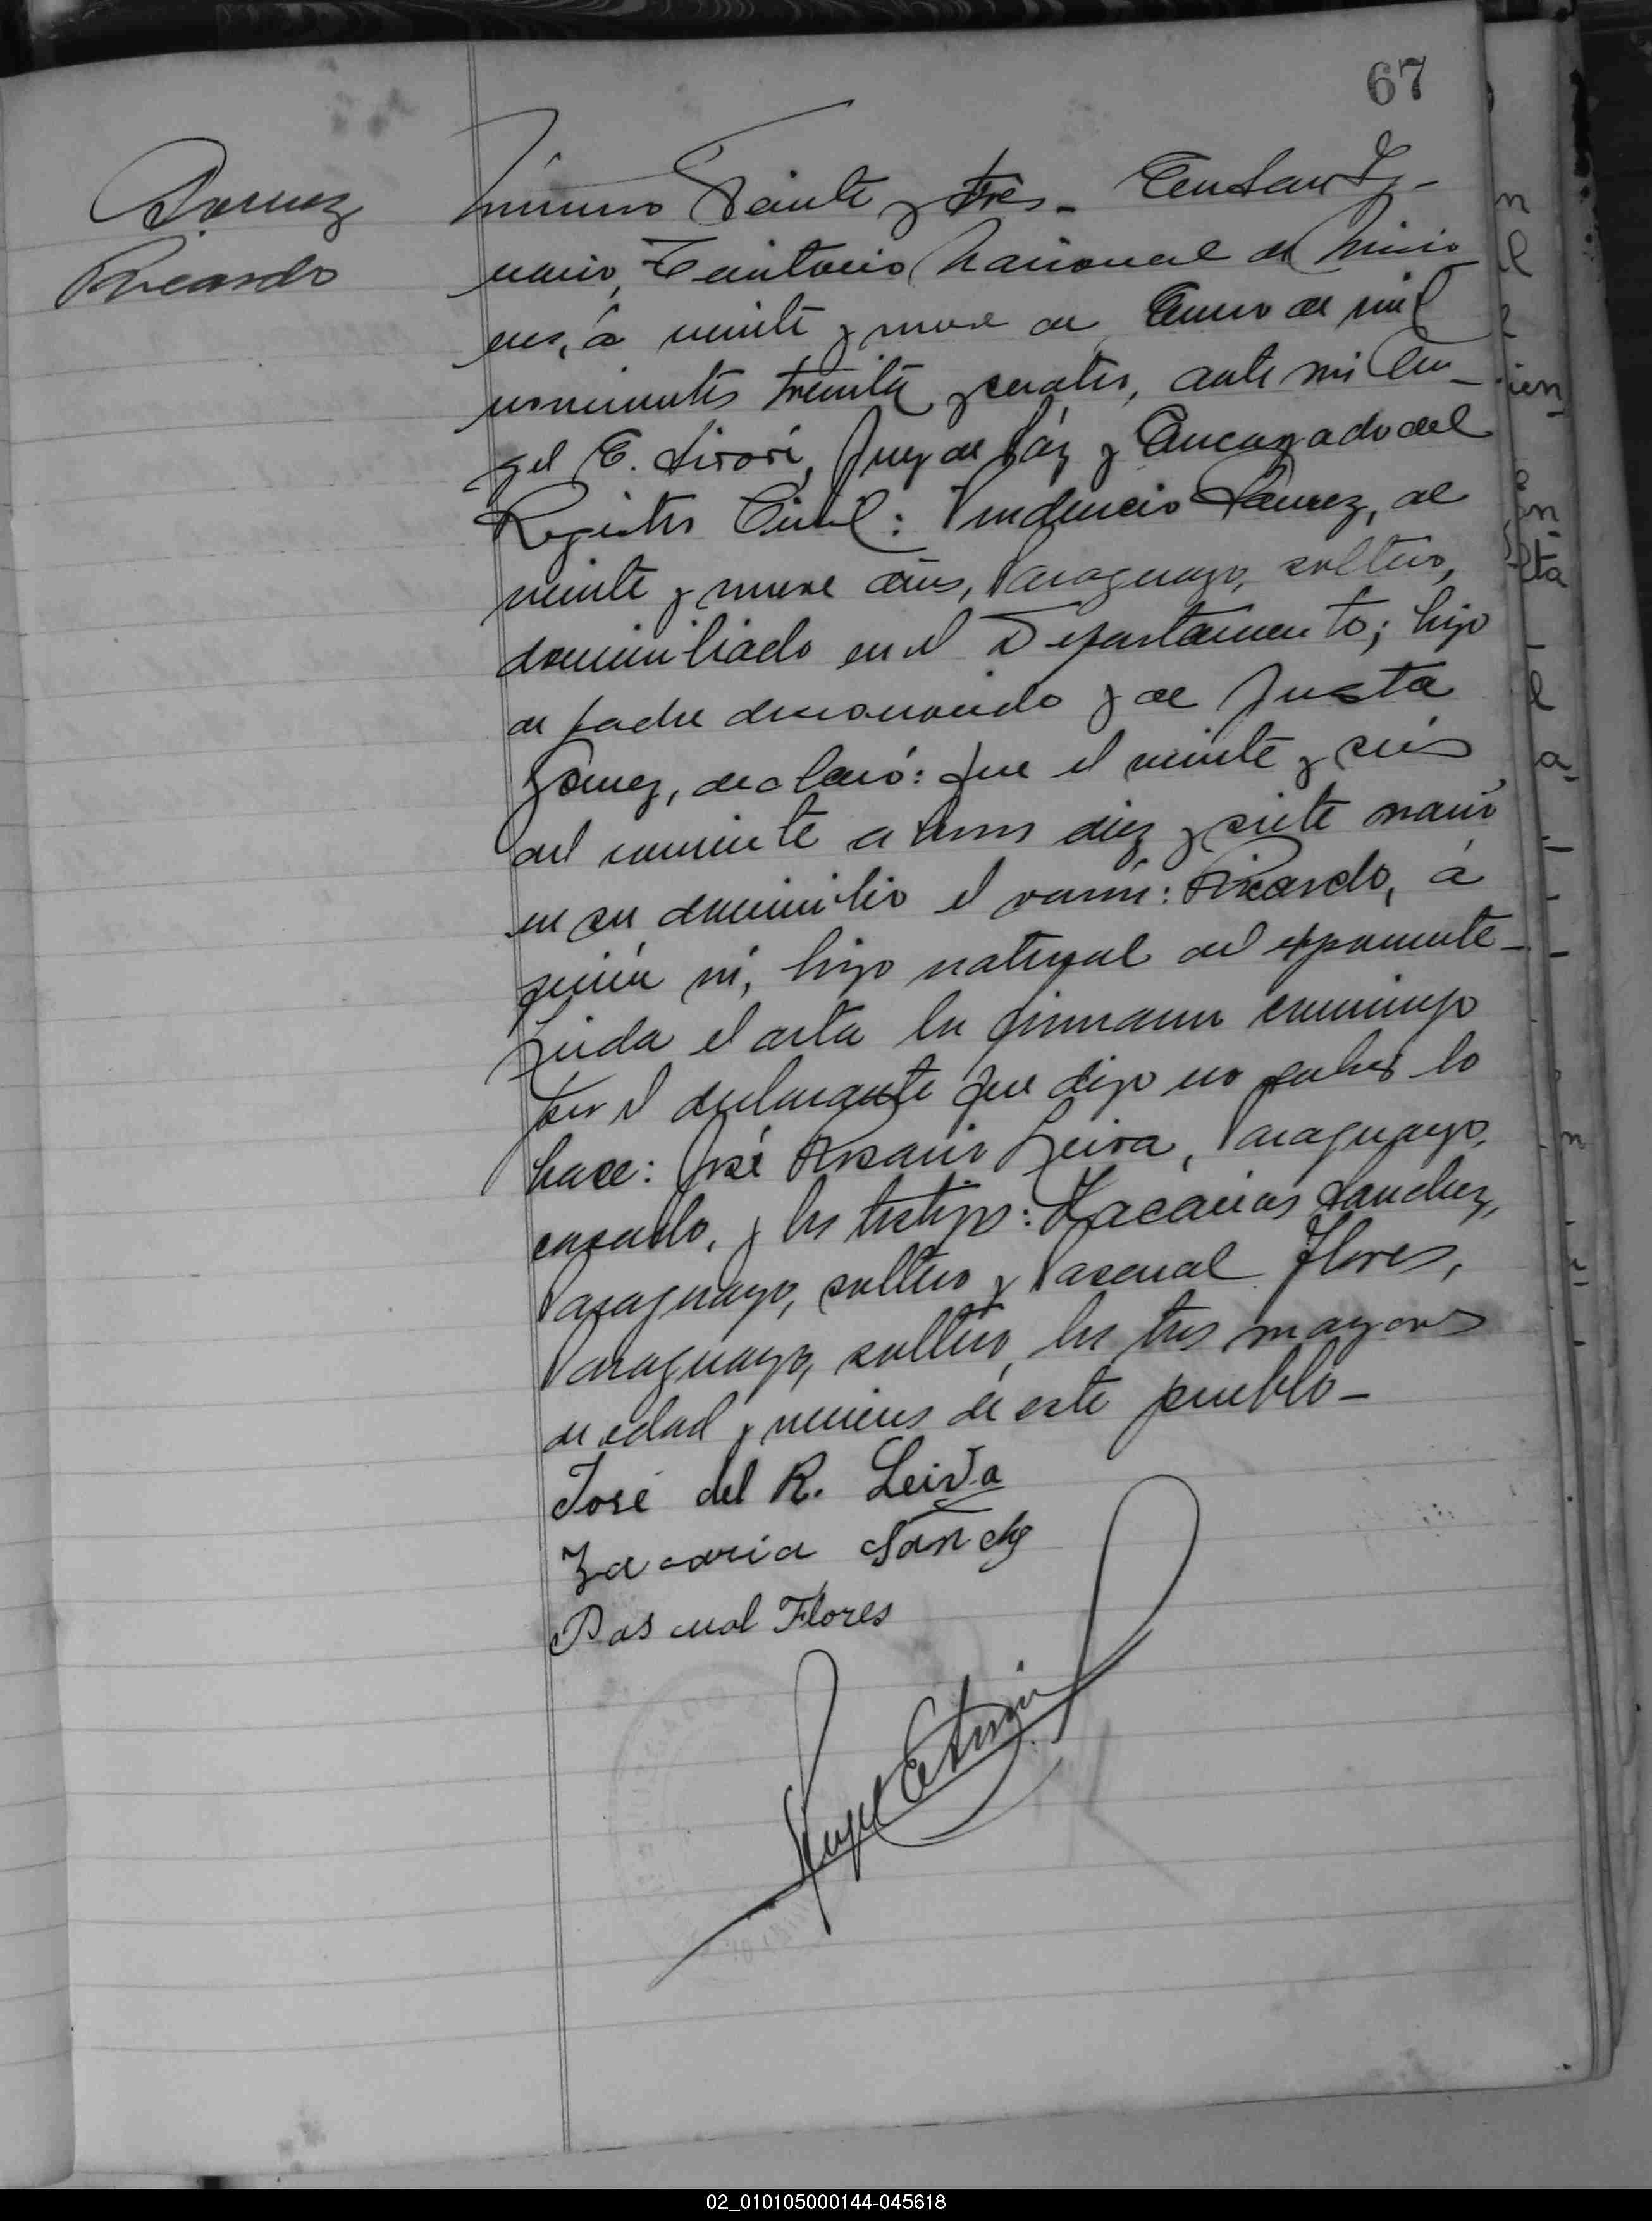 67
Gomez
Ricardo
Número Veinte y tres_ En San Ig-
nacio, Territorio Nacional de Misio
nes, á veinte y nueve de Enero de mil
novecientos treinta y cuatro, ante mi An_
gel E. Sivori, Juez de Páz y Encargado del
Registro Civil: Prudencio Gomez, de
veinte y nueve años, Paraguayo, soltero,
domiciliado en el Departamento; hijo
de padre desconocido y de Justa
Gomez, declaró: que el veinte y seis
del corriente a horas diez y siete nació
en su domicilio el varón: Ricardo, á
quién ví, hijo natural del exponente_
Leida el acta la firmaron conmigo
por el declarante que dijo no saber lo
hace: José Rosario Leiva, Paraguayo,
casado, y los testigos: Zacarias Sanchez,
Paraguayo, soltero y Pascual Flores,
Paraguayo, soltero, los tres mayores
de edad y vecinos de este pueblo_
José del R. Leiva
Zacaria Sánchz
Pascual Flores
Angel E Sivori
02_010105000144-045618